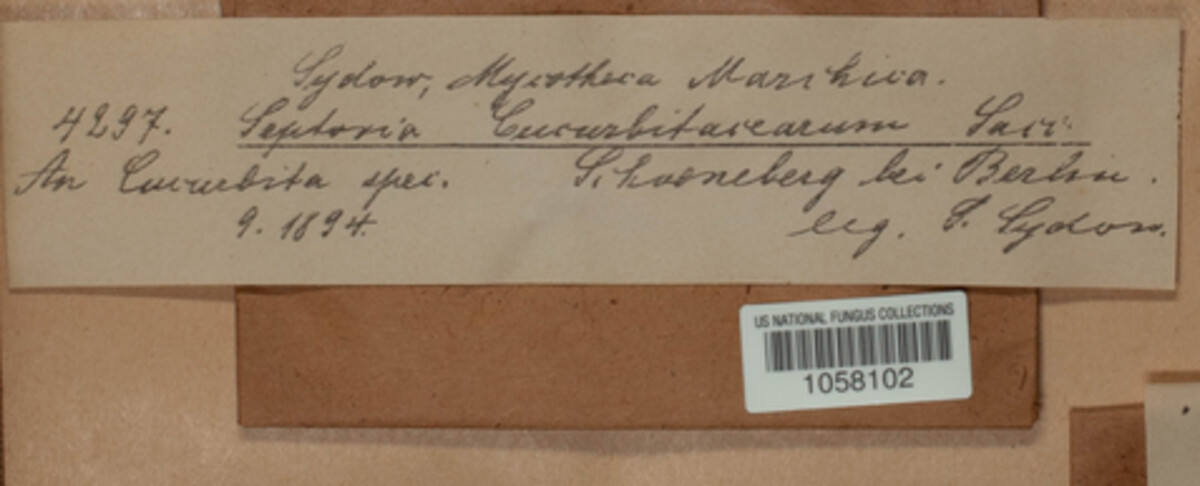 Sydow, Mycotheca Marchica.
4297. Septoria Cucurbitacearum Sacc.
An Cucurbita spec. Schoeneberg bei Berlin.
9. 1894. leg. P. Sydow.
US NATIONAL FUNGUS COLLECTIONS
1058102